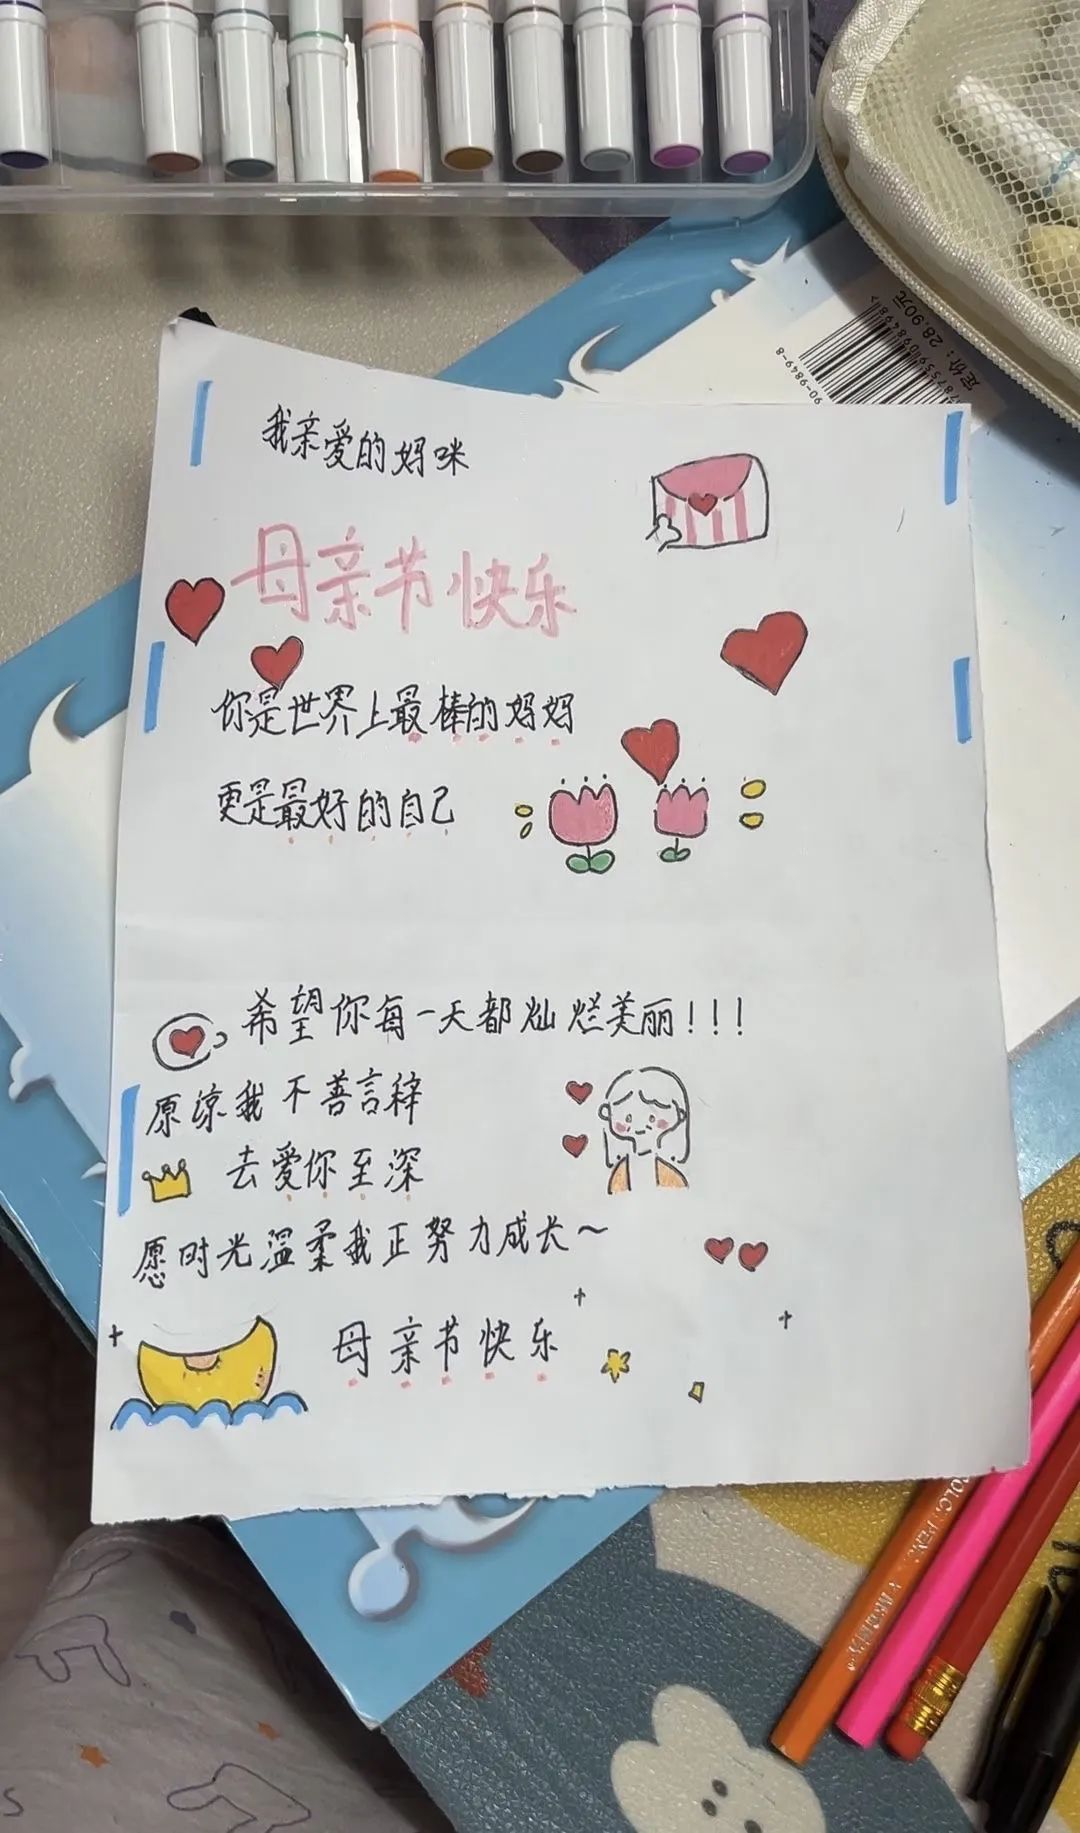 我亲爱的妈咪
母亲节快乐
你是世界上最棒的妈妈
更是最好的自己
希望你每一天都灿烂美丽!!!
原谅我不善言辞
去爱你至深
愿时光温柔我正努力成长~
母亲节快乐
定价:28.90元